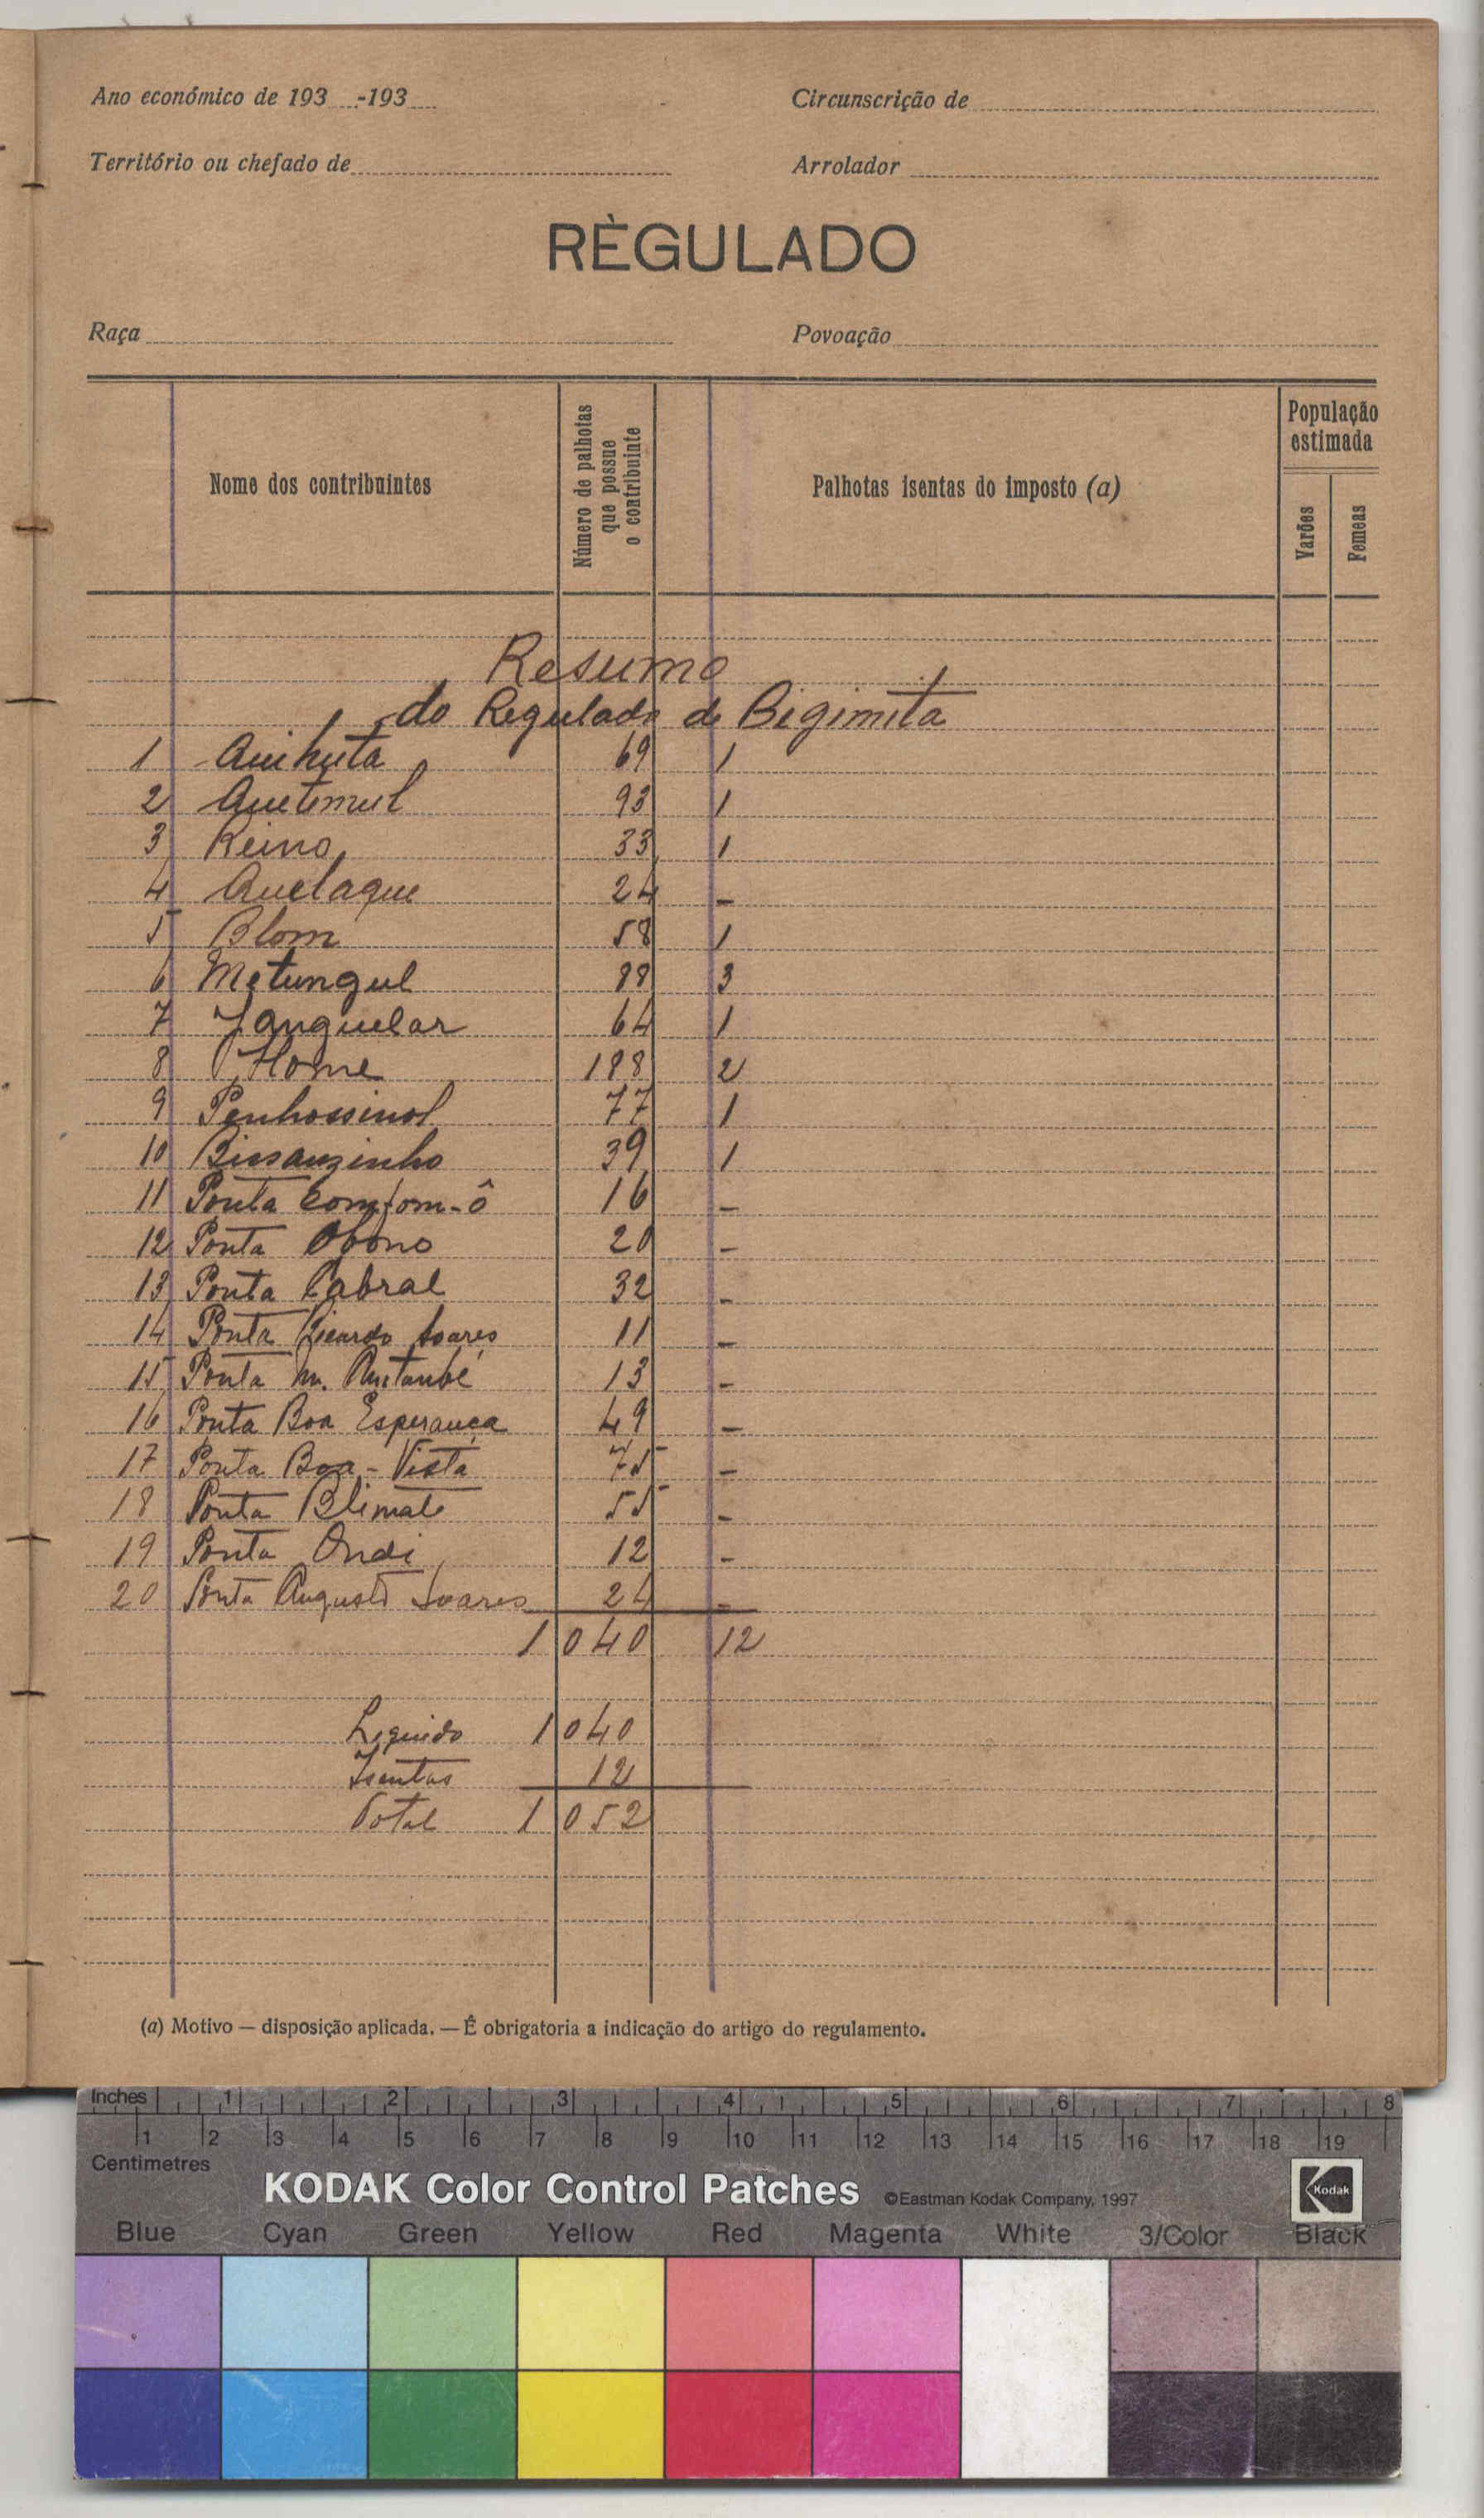 Ano económico de 193 -193
Circunscrição de
Território ou chefado de
Arrolador
RÈGULADO
Raça
Povoação
Nome dos contribuintes
Número de palhotas que possue o contribuinte
Palhotas isentas do imposto (a)
População estimada
Varões
Femeas
Resumo
do Regulado de Bigimita
1 69 1
2 93 1
3 Reino 33 1
4 Quelaque 24 -
5 Blom 58 1
6 Metungul 88 3
7 Janguelar 64 1
8 Home 188 2
9 Penhossinol 77 1
10 Bissauzinho 39 1
11 Ponta 16 -
12 Ponta 20 -
13 Ponta Cabral 32 -
14 Ponta Ricardo Soares 11 -
15 Ponta M. 13 -
16 Ponta Boa Esperança 49 -
17 Ponta Boa-Vista 75 -
18 Ponta Blimat 55 -
19 Ponta Ondi 12 -
20 Ponta Augusto Soares 24 -
1 040 12
Liquido 1 040
Isentas 12
Total 1 052
(a) Motivo — disposição aplicada. — É obrigatoria a indicação do artigo do regulamento.
Inches 1 2 3 4 5 6 7 8
1 2 3 4 5 6 7 8 9 10 11 12 13 14 15 16 17 18 19
Centimetres
KODAK Color Control Patches ©Eastman Kodak Company, 1997 Kodak
Blue Cyan Green Yellow Red Magenta White 3/Color Black